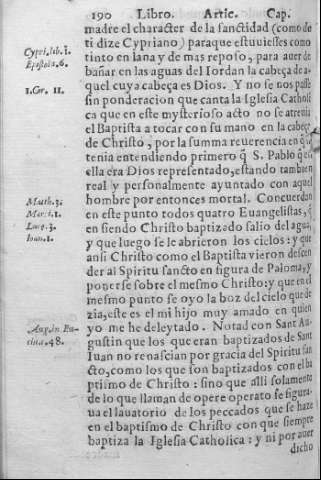 190 Libro. Artic. Cap.
madre el character de la sanctidad (como de
ti dize Cypriano) paraque estuuiesses como
tinto en lana y de mas reposo, para auer de
bañar en las aguas del Iordan la cabeça de a-
quel cuya cabeça es Dios. Y no se nos passe
sin ponderacion que canta la Iglesia Catholi
ca que en este mysterioso acto no se atrenia
el Baptista a tocar con su mano en la cabeça
de Christo, por la summa reuerencia en q̃
tenia entendiendo primero q̃ S. Pablo q̃
ella era Dios representado, estando tambien
real y personalmente ayuntado con aquel
hombre por entonces mortal. Concuerdan
en este punto todos quatro Euangelistas, q̃
en siendo Christo baptizado salio del agua,
y que luego se le abrieron los cielos: y que
ansi Christo como el Baptista vieron descen
der al Spiritu sancto en figura de Paloma, y
ponerse sobre el mesmo Christo: y que en el
mesmo punto se oyo la boz del cielo que de
zia, este es el mi hijo muy amado en quien
yo me he deleytado. Notad con Sant Au-
gustin que los que eran baptizados de Sant
Iuan no renascian por gracia del Spiritu san
cto, como los que son baptizados con el ba
ptismo de Christo: sino que alli solamente
de lo que llaman de opere operato se figura-
ua el lauatorio de los peccados que se haze
en el baptismo de Christo con que siempre
baptiza la Iglesia Catholica: y ni por auer
dicho
Cypri. lib. 1.
Epistola. 6.
1. Cor. 11.
Math. 3.
Mar. 1.
Luce. 3.
Ioan. 1.
August. in En-
48.